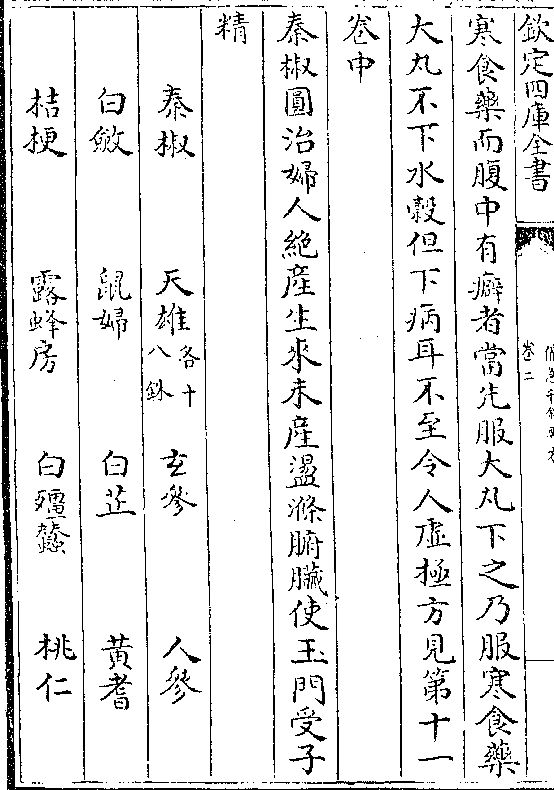 欽定四庫全書
卷二
寒食藥而腹中有癖者當先服大丸下之乃服寒食藥
大丸不下水穀但下病耳不至令人虛極方見第十一
卷中
秦椒圓治婦人絶産生來未産盪滌腑臟使玉門受子
精
秦椒 天雄各十八銖 玄參 人參
白斂 鼠婦 白芷 黃耆
桔梗 露蜂房 白殭蠶 桃仁